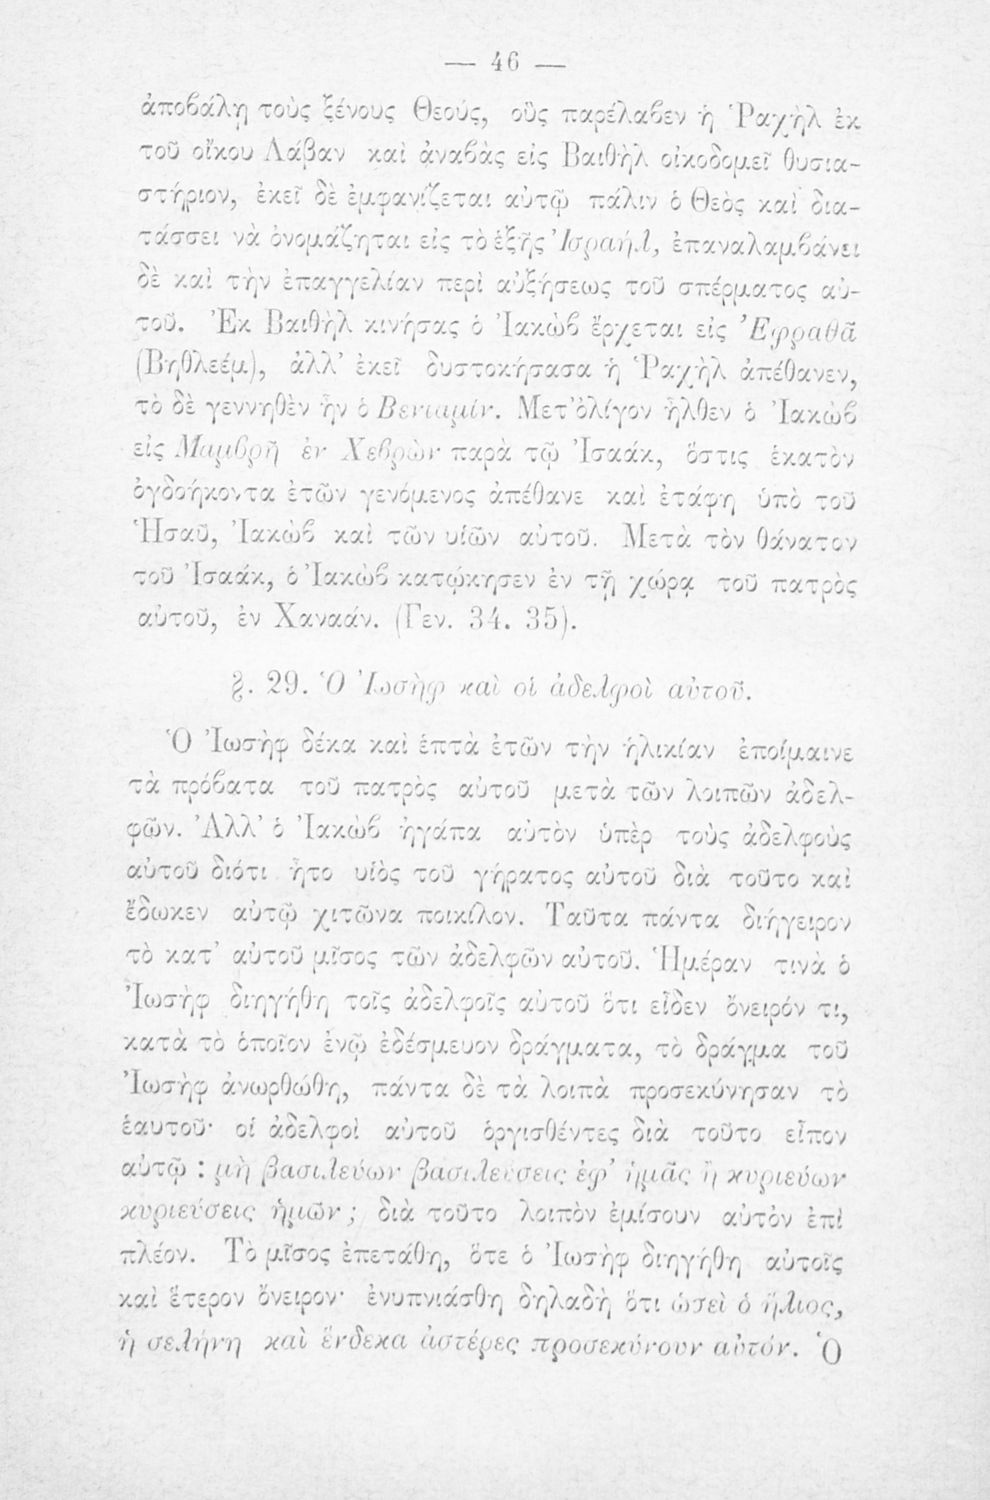 — 46 —
ἀποβάλῃ τοὺς ξένους Θεούς, οὓς παρέλαβεν ἡ Ῥαχὴλ ἐκ
τοῦ οἴκου Λάβαν καὶ ἀναβὰς εἰς Βαιθὴλ οἰκοδομεῖ θυσια-
στήριον, ἐκεῖ δὲ ἐμφανίζεται αὐτῷ πάλιν ὁ Θεὸς καὶ δια-
τάσσει νὰ ὀνομάζηται εἰς τὸ ἑξῆς Ἰσραήλ, ἐπαναλαμβάνει
δὲ καὶ τὴν ἐπαγγελίαν περὶ αὐξήσεως τοῦ σπέρματος αὐ-
τοῦ. Ἐκ Βαιθὴλ κινήσας ὁ Ἰακὼβ ἔρχεται εἰς Ἐφραθᾶ
(Βηθλεέμ), ἀλλ' ἐκεῖ δυστοκήσασα ἡ Ῥαχὴλ ἀπέθανεν,
τὸ δὲ γεννηθὲν ἦν ὁ Βενιαμίν. Μετ' ὀλίγον ἦλθεν ὁ Ἰακὼβ
εἰς Μαμβρῆ ἐν Χεβρὼν παρὰ τῷ Ἰσαάκ, ὅστις ἑκατὸν
ὀγδοήκοντα ἐτῶν γενόμενος ἀπέθανε καὶ ἐτάφη ὑπὸ τοῦ
Ἡσαῦ, Ἰακὼβ καὶ τῶν υἱῶν αὐτοῦ. Μετὰ τὸν θάνατον
τοῦ Ἰσαάκ, ὁ Ἰακὼβ κατῴκησεν ἐν τῇ χώρᾳ τοῦ πατρὸς
αὐτοῦ, ἐν Χαναάν. (Γεν. 34. 35).
§. 29. Ὁ Ἰωσὴφ καὶ οἱ ἀδελφοὶ αὐτοῦ.
Ὁ Ἰωσὴφ δέκα καὶ ἑπτὰ ἐτῶν τὴν ἡλικίαν ἐποίμαινε
τὰ πρόβατα τοῦ πατρὸς αὐτοῦ μετὰ τῶν λοιπῶν ἀδελ-
φῶν. Ἀλλ' ὁ Ἰακὼβ ἠγάπα αὐτὸν ὑπὲρ τοὺς ἀδελφοὺς
αὐτοῦ διότι ἦτο υἱὸς τοῦ γήρατος αὐτοῦ διὰ τοῦτο καὶ
ἔδωκεν αὐτῷ χιτῶνα ποικίλον. Ταῦτα πάντα διήγειρον
τὸ κατ' αὐτοῦ μῖσος τῶν ἀδελφῶν αὐτοῦ. Ἡμέραν τινὰ ὁ
Ἰωσὴφ διηγήθη τοῖς ἀδελφοῖς αὐτοῦ ὅτι εἶδεν ὄνειρόν τι,
κατὰ τὸ ὁποῖον ἐνῷ ἐδέσμευον δράγματα, τὸ δράγμα τοῦ
Ἰωσὴφ ἀνωρθώθη, πάντα δὲ τὰ λοιπὰ προσεκύνησαν τὸ
ἑαυτοῦ· οἱ ἀδελφοὶ αὐτοῦ ὀργισθέντες διὰ τοῦτο εἶπον
αὐτῷ : μὴ βασιλεύων βασιλεύσεις ἐφ' ἡμᾶς ἢ κυριεύων
κυριεύσεις ἡμῶν ; διὰ τοῦτο λοιπὸν ἐμίσουν αὐτὸν ἐπὶ
πλέον. Τὸ μῖσος ἐπετάθη, ὅτε ὁ Ἰωσὴφ διηγήθη αὐτοῖς
καὶ ἕτερον ὄνειρον· ἐνυπνιάσθη δηλαδὴ ὅτι ὡσεὶ ὁ ἥλιος,
ἡ σελήνη καὶ ἕνδεκα ἀστέρες προσεκύνουν αὐτόν. Ὁ